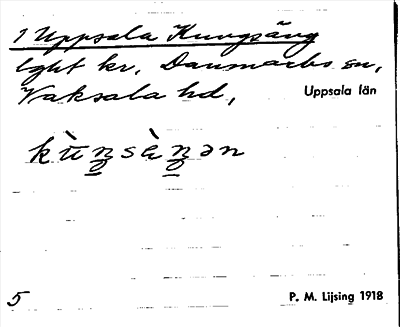 1 Uppsala Kungsäng
lght kr, Danmarks sn,
Vaksala hd,
Uppsala län
5
P. M. Lijsing 1918